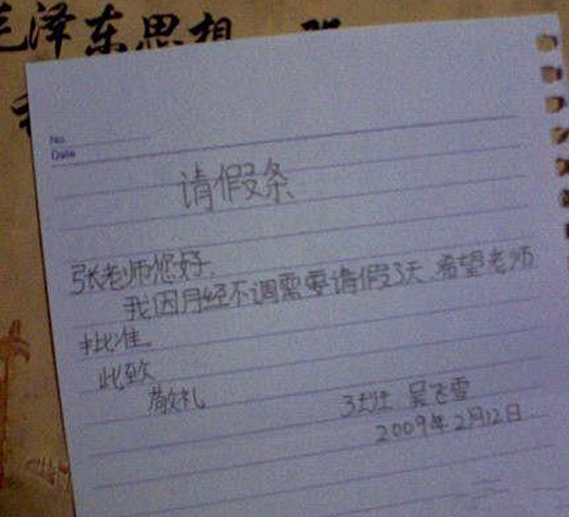 毛泽东思想
No.
Date
请假条
张老师您好.
我因月经不调需要请假3天 希望老师
批准.
此致
敬礼
3班 吴飞雪
2009年2月12日